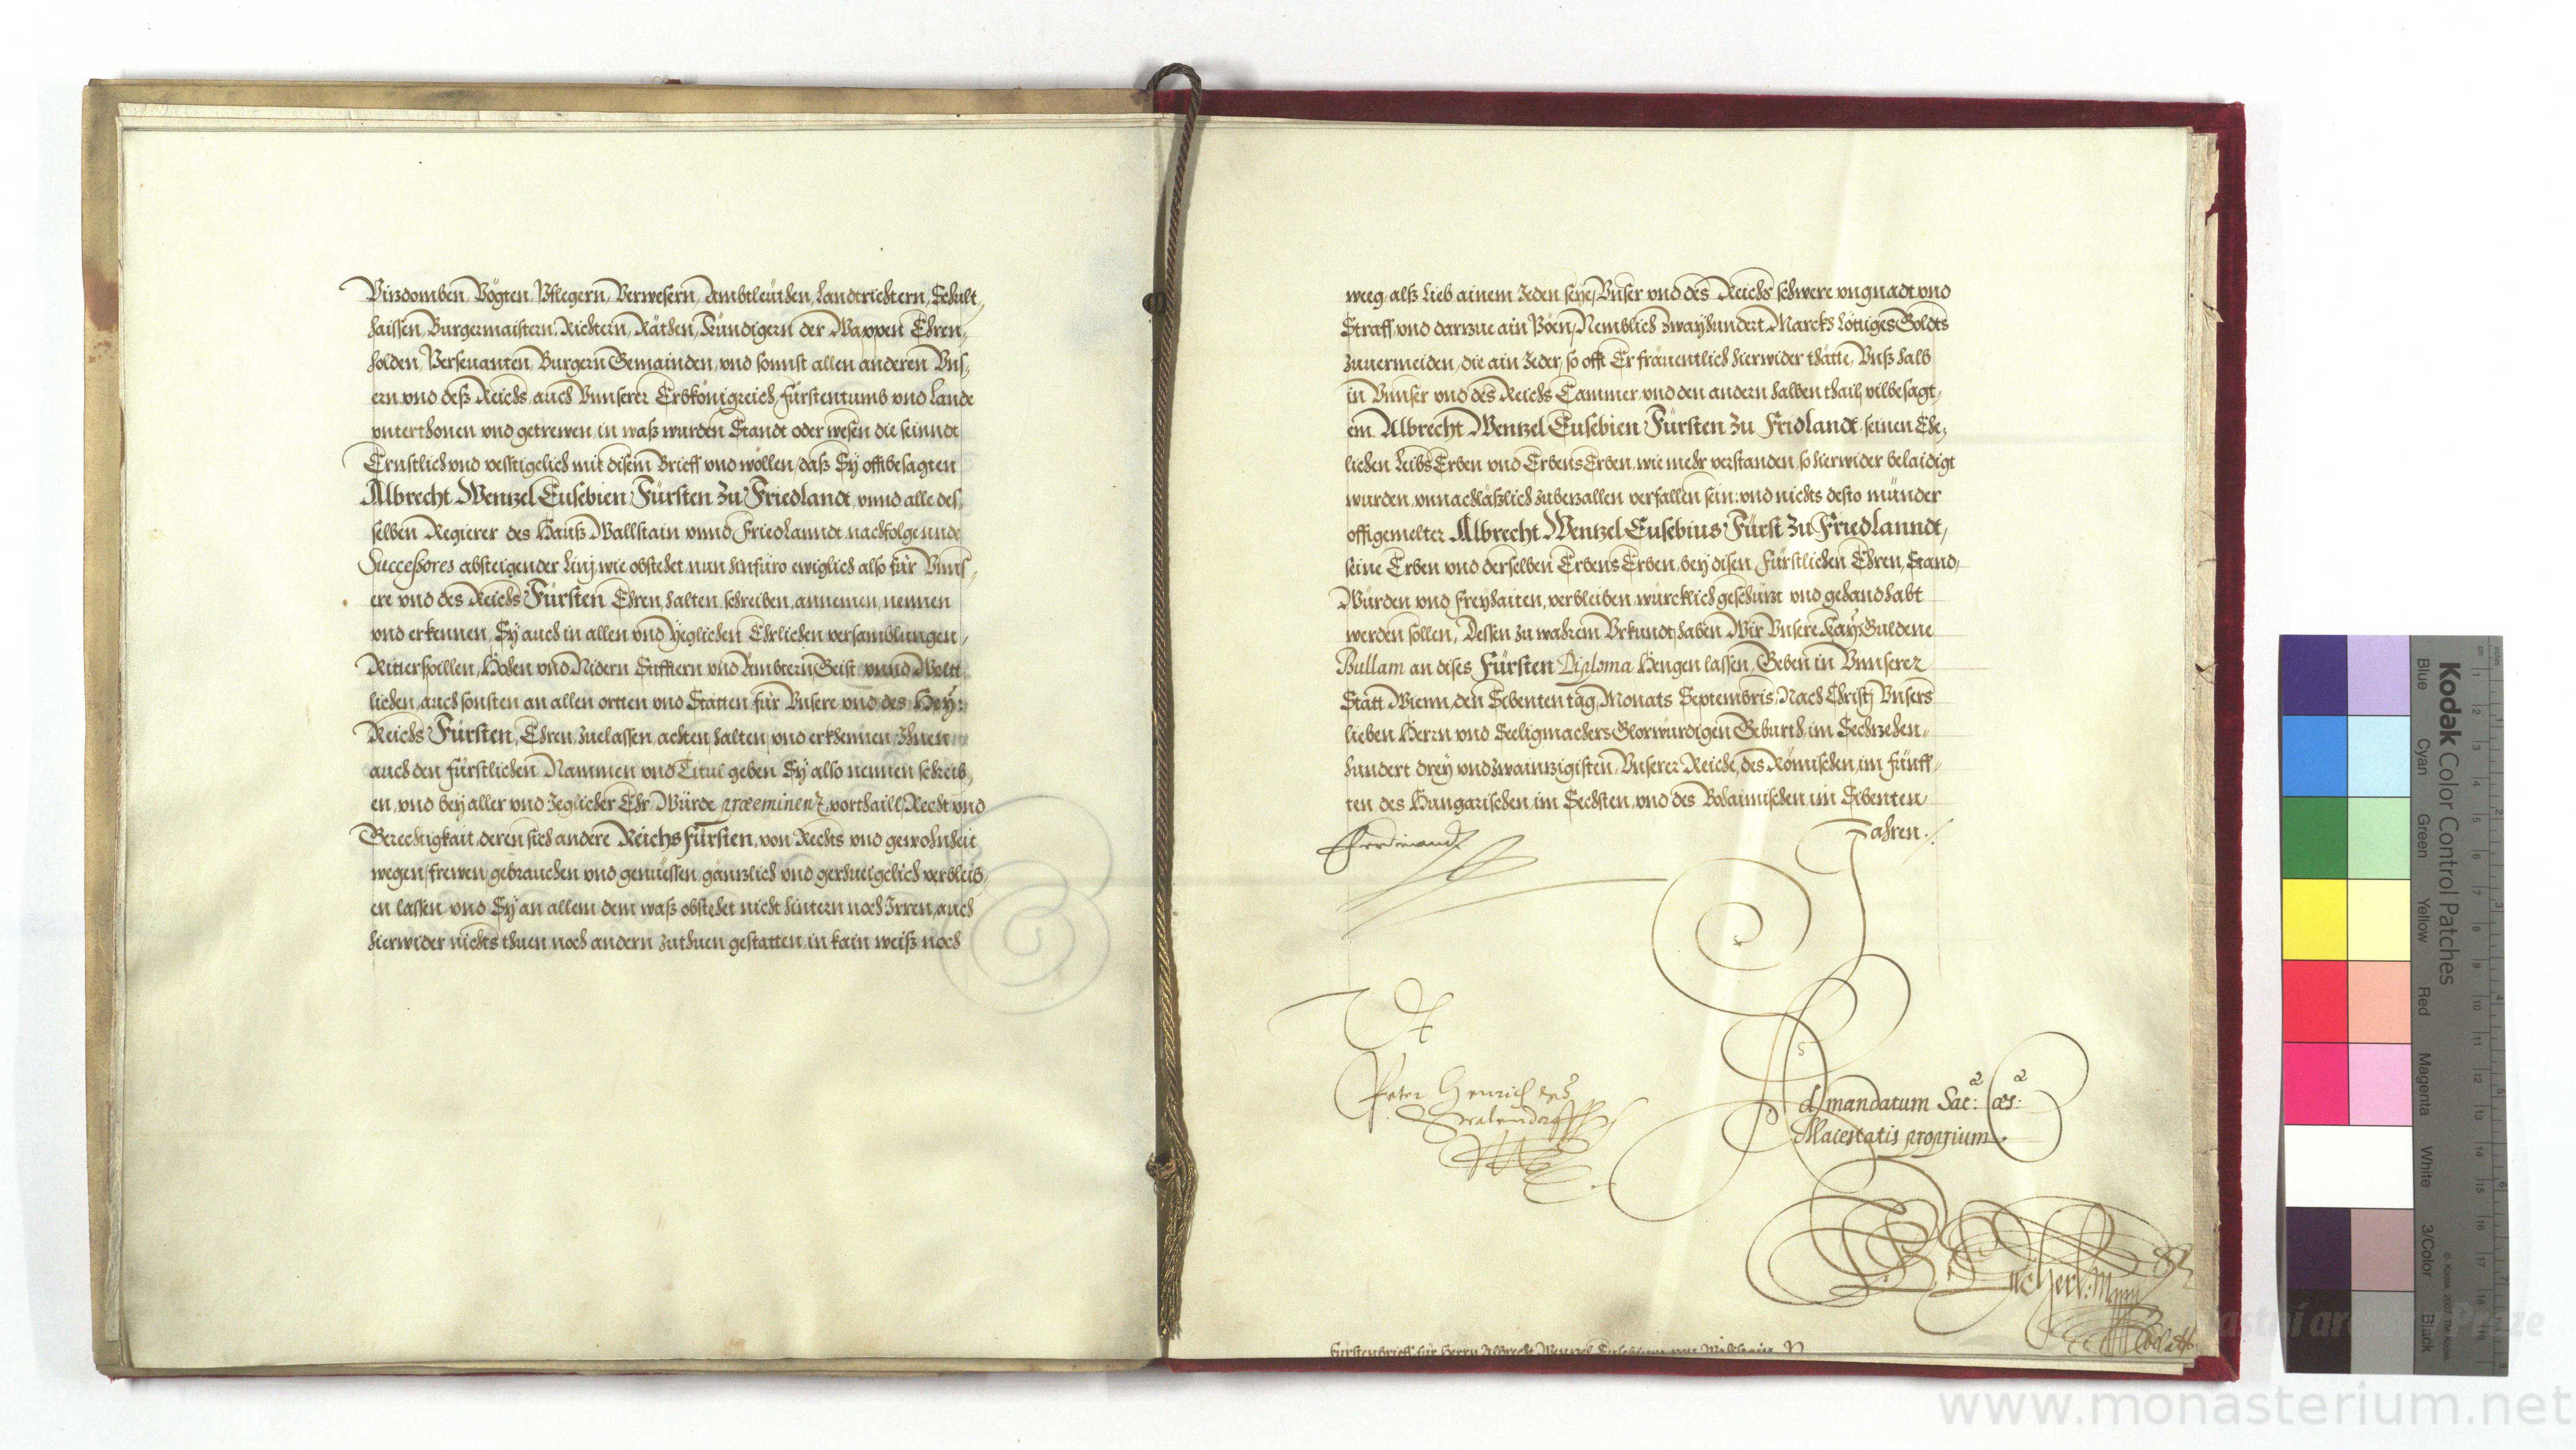 Vizdomben, Vögten, Pflegern, Verwesern, Ambtleüthen, Landtrichtern, Schult,
haissen, Burgermaistern, Richtern, Räthen, Kündigern der Wappen Ehren,
holden, Persevanten, Burgern Gemainden, vnd sonnst allen anderen Vns,
ern vnd deß Reichs, auch Vnnserer Erbkönigreich, Fürstentumb vnd Lande
vnterthonen vnd getrewen, in waß wurden Standt oder wesen die seinndt
Ernstlich vnd vesstigelich mit disem Brieff vnd wöllen, daß Sÿ offtbesagten
Albrecht Wentzel Eusebien Fürsten zu Friedlandt, vnnd alle des,
selben Regierer des Hauß Wallstain vnnd Friedlanndt nachfolgennde
Successores absteigender Linj, wie obstehet, nun hinfüro ewiglich also für Vnns,
ere vnd des Reichs Fürsten Ehren, halten, schreiben, annemen, nennen
vnd erkennen, Sÿ auch in allen vnd Yeglichen Ehrlichen versamblungen,
Ritterspillen, Hohen vnd Nidern Stifftern vnd Ämbtern, Geist vnnd Weltt,
lichen, auch sonsten an allen ortten vnd Stätten für Vnsere vnd des Heÿ:
Reichs Fürsten, Ehren, zuelassen, achten, halten, vnd erkhennen, Ihnen
auch den fürstlichen Nammen vnd Titul geben Sÿ also nennen schreib,
en, vnd beÿ aller vnd Jeglicher Ehr, Würde præeminentz, vorthaill, Recht vnd
Gerechtigkait, deren sich andere Reichs Fürsten, von Rechts vnd gewohnheit
wegen, frewen, gebrauchen vnd genüessen, gäntzlich vnd gerhueigelich verbleib,
en lassen, vnd Sÿ an allem dem waß obstehet nicht hintern noch Irren, auch
hierwider nichts thuen, noch andern zuthuen gestatten, in kain weiß noch
weeg, alß lieb ainem Jeden seye, Vnser vnd des Reichs schwere vngnadt vnd
Straff, vnd darzue ain Pöen, Nemblich zwayhundert Marckh löttiges Goldts
zuuermeiden, die ain Jeder, so offt Er fräuentlich hierwider thätte, Vnß halb
in Vnnser vnd des Reichs Cammer, vnd den andern halben thail, vilbesagt,
em Albrecht Wentzel Eusebien Fürsten zu Fridlandt, seinen Ehe,
lichen Leibs Erben vnd Erbens Erben, wie mehr verstanden, so hierwider belaidigt
wurden, vnnachläßlich zubezallen verfallen sein: vnd nichts desto münder
offtgemelter Albrecht Wentzel Eusebius Fürst zu Friedlanndt,
seine Erben vnd derselben Erbens Erben, beÿ disen Fürstlichen Ehren, Stand,
Würden vnd Freyhaiten, verbleiben, würcklich geschützt vnd gehandhabt
werden sollen, Dessen zu wahrem Vrkundt, haben Wir Vnsere Kaÿ: Guldene
Bullam an dises Fürsten Diploma hengen lassen, Geben in Vnnserer
Statt Wienn, den Sibenten tag, Monats Septembris, Nach Christj Vnsers
lieben Herrn vnd Seeligmachers Glorwürdigen Geburth, im Sechzehen,
hundert drey vnd zwaintzigisten, Vnserer Reiche, des Römischen, im fünff,
ten, des Hungarischen, im Sechsten, vnd des Behaimischen, im Sibenten
Jahren.
Ferdinandt
Peter Henrich von
Stralendorff
Ad mandatum Sac: Cæs:
Maiestatis proprium
Fürstenbrieff für Herrn Albrecht Wenzel Eusebium von Wallstain
Kodak Color Control Patches
Blue Cyan Green Yellow Red Magenta White 3/Color Black
www.monasterium.net